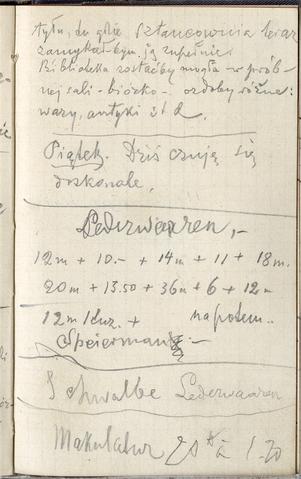 tyłu, do gdzie sztancownia teraz
zamykałbym ją zupełnie.
Biblioteka zostaćby mogła w prób-
nej sali - biórko - ozdoby różne:
wazy, antyki itd.
Piątek. Dziś czuję się
doskonale.
Lederwaaren,-
12m + 10.- + 14m + 11 + 18m.
20m + 13.50 + 36m + 6 + 12m
12m + napotem..
Speierman :-
Schwalbe Lederwaaren
Makulatur à 1.20